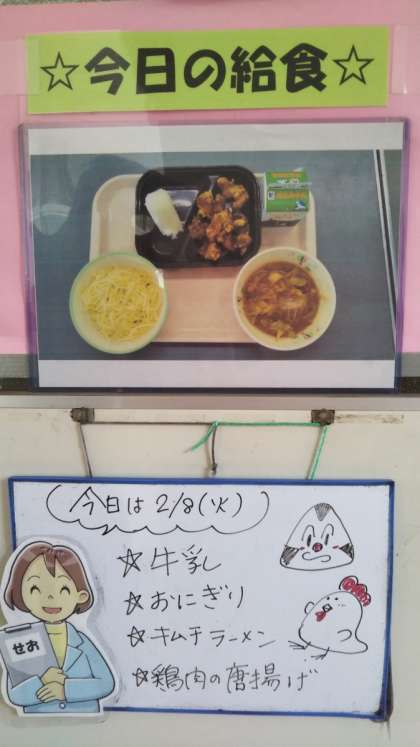 ☆今日の給食☆
今日は 2/8(火)
☆牛乳
☆おにぎり
☆キムチラーメン
☆鶏肉の唐揚げ
せお